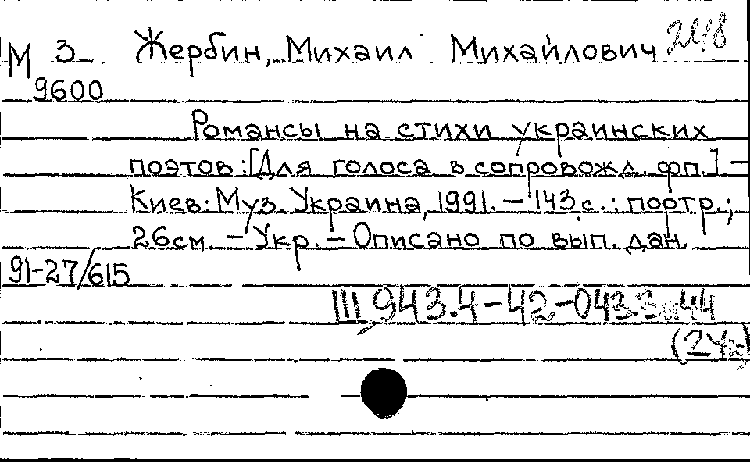 М 3-9600
Жербин, Михаил Михайлович
Романсы на стихи украинских
поэтов: [Для голоса в сопровожд. фп.] –
Киев: Муз. Украина, 1991. – 143 с.: портр.;
26см. – Укр. – Описано по вып. дан.
91-27/615
III 943.4-42-043.3